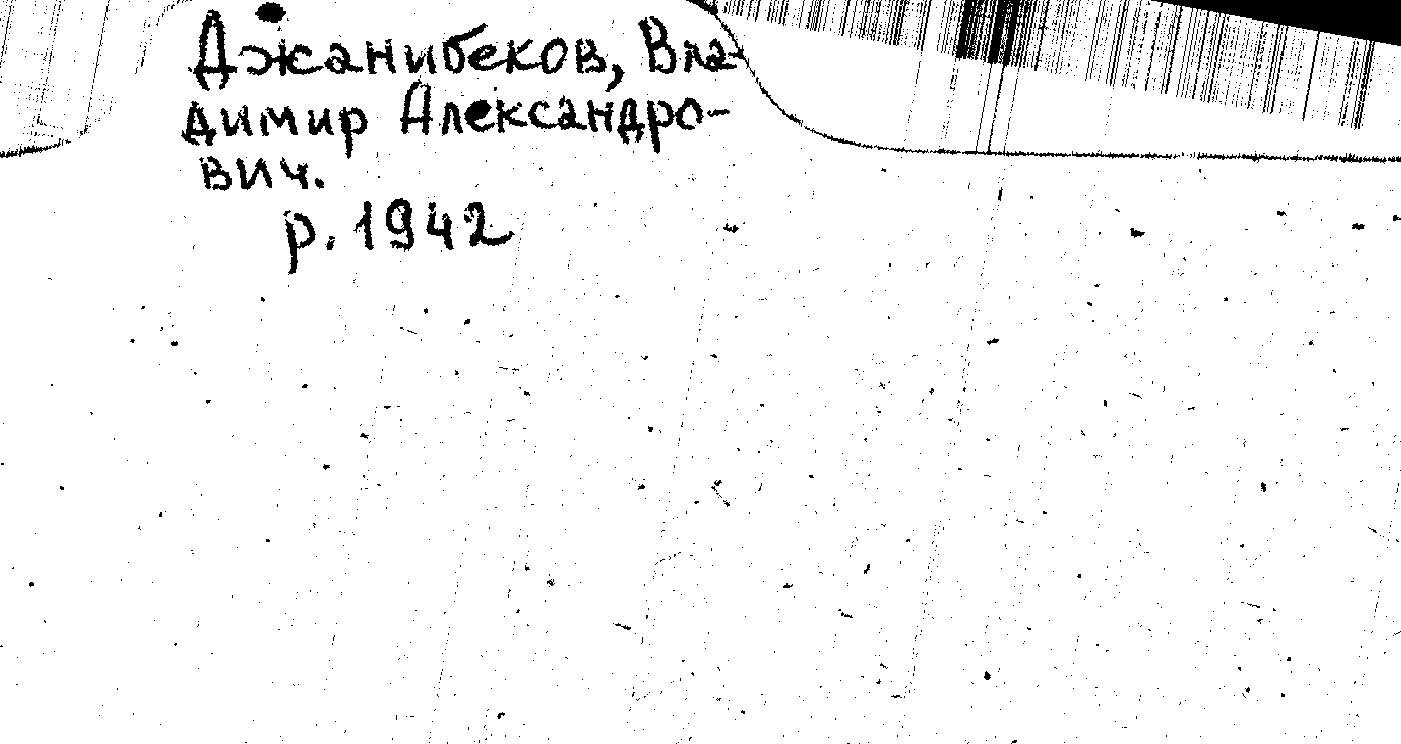 Джанибеков, Вла-
димир Александро-
вич.
р. 1942